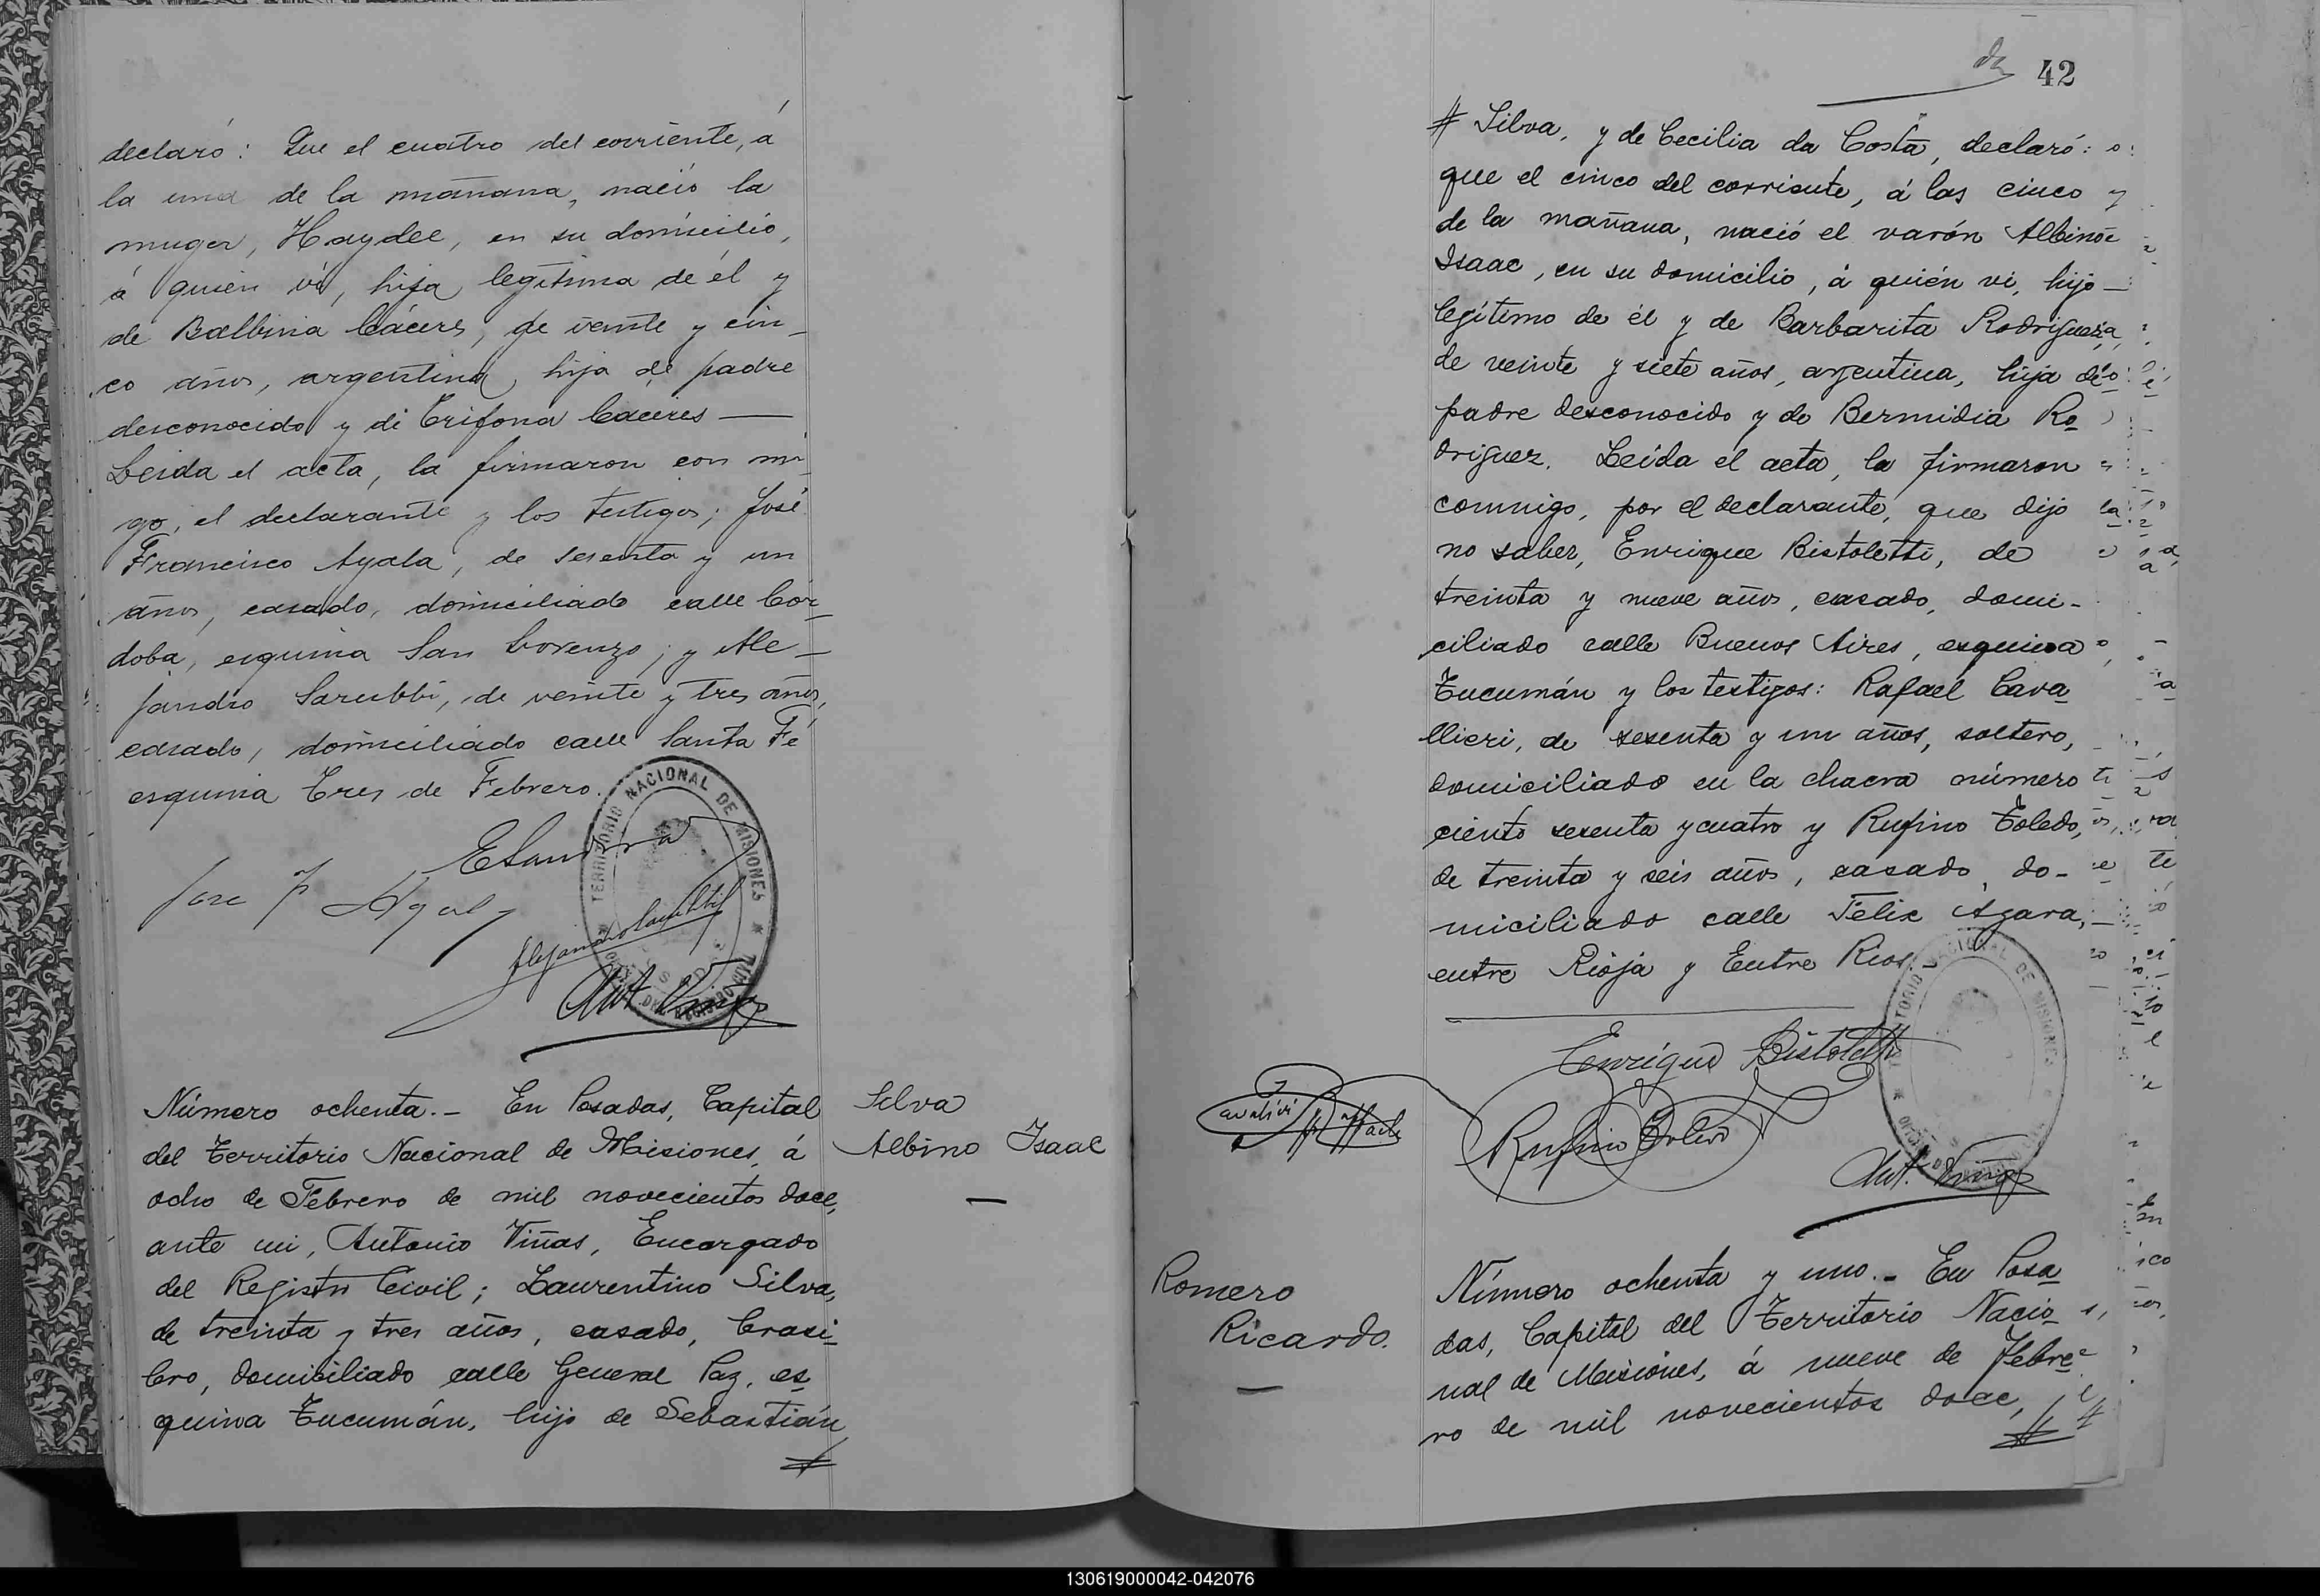 declaró: Que el cuatro del corriente, á
la una de la mañana, nació la
muger, Haydee, en su domicilio,
á quien ví, hija legítima de él y
de Balbina Cáceres, de veinte y cin_
co años, argentina, hija de padre
desconocido y de Trifona Caceres —
Leida el acta, la firmaron con mi_
go, el declarante y los testigos; José
Francisco Ayala, de sesenta y un
años, casado, domiciliado calle Cór_
doba, esquina San Lorenzo; y Ale_
jandro Sarubbi, de veinte y tres años,
casado, domiciliado calle Santa Fé
esquina Tres de Febrero.
TERRITORIO NACIONAL DE MISIONES
Jose F Ayala
Alejandro Sarubbi
Ant. Viñas
Número ochenta.- En Posadas, Capital
del Territorio Nacional de Misiones, á
ocho de Febrero de mil novecientos doce,
ante mi, Antonio Viñas, Encargado
del Registro Civil; Laurentino Silva,
de treinta y tres años, casado, brasi_
lero, domiciliado calle General Paz, es_
quina Tucumán, hijo de Sebastián
#
Silva
Albino Isaac
—
42
# Silva, y de Cecilia da Costa, declaró:
que el cinco del corriente, á las cinco
de la mañana, nació el varón Albino
Isaac, en su domicilio, á quién ví, hijo —
legítimo de él y de Barbarita Rodriguez,
de veinte y siete años, argentina, hija de
padre desconocido y de Bermidia Ro_
driguez. Leída el acta, la firmaron
conmigo, por el declarante, que dijo
no saber, Enrique Bistoletti, de
treinta y nueve años, casado, domi-
ciliado calle Buenos Aires, esquina
Tucumán y los testigos: Rafael Cava_
llieri, de sesenta y un años, soltero,
domiciliado en la chacra número
ciento sesenta y cuatro y Rufino Toledo,
de treinta y seis años, casado, do-
miciliado calle Félix Azara,
entre Rioja y Entre Rios.
TERRITORIO NACIONAL DE MISIONES
Enrique Bistoletti
Rufino Toledo
Ant. Viñas
Romero
Ricardo.
—
Número ochenta y uno.- En Posa_
das, Capital del Territorio Nacio_
nal de Misiones, á nueve de Febre_
ro de mil novecientos doce,
#
130619000042-042076